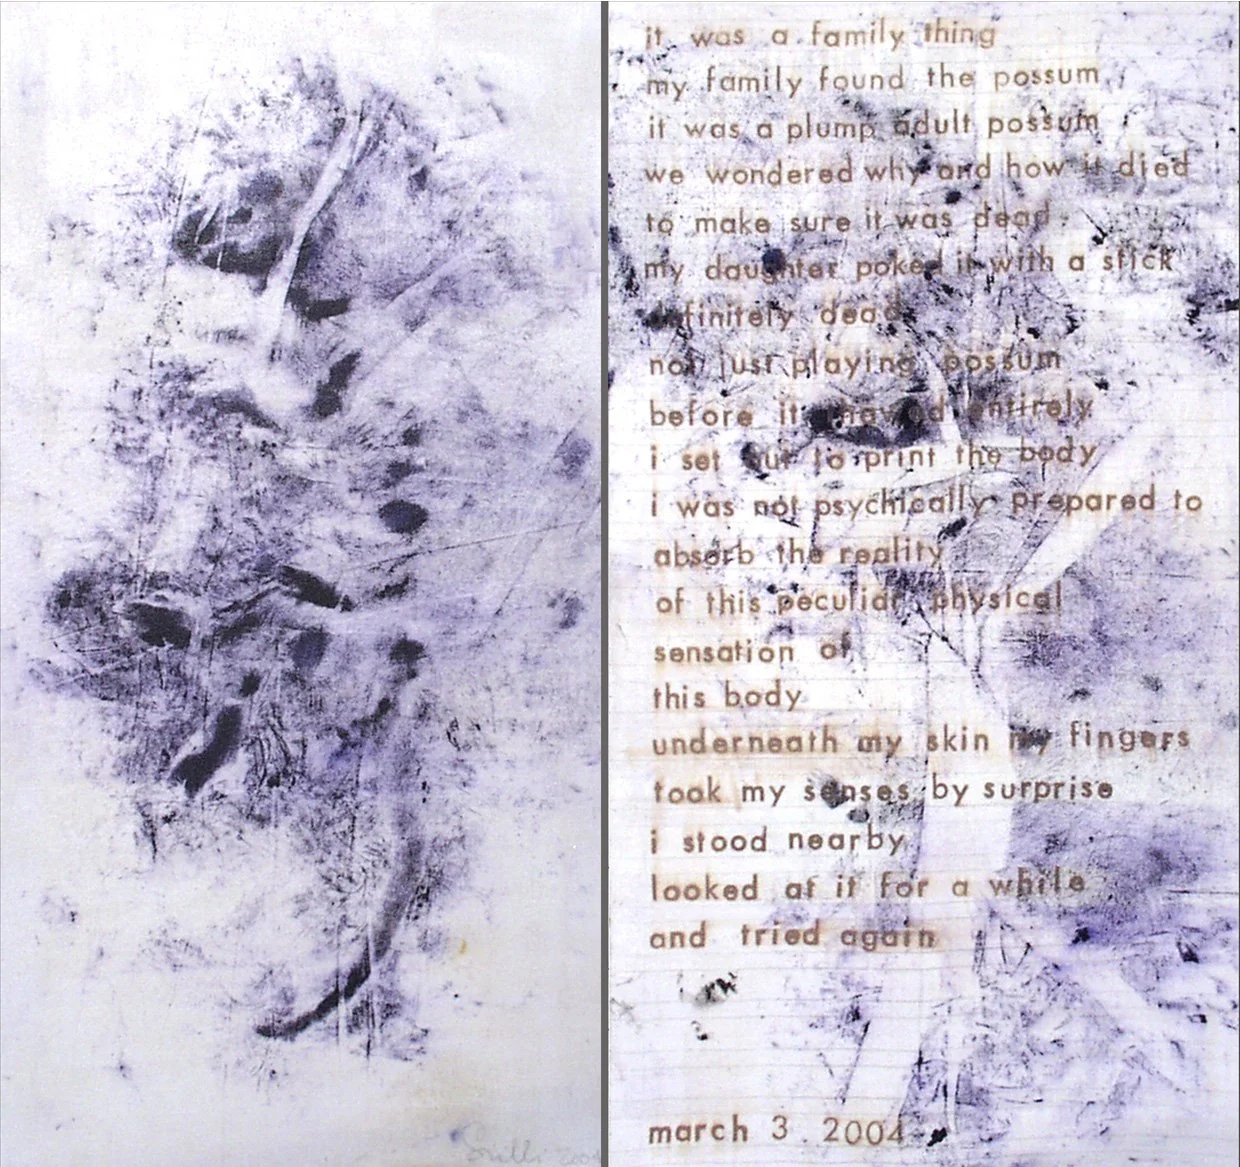 it was a family thing
my family found the possum
it was a plump adult possum
we wondered why and how it died
to make sure it was dead
my daughter poked it with a stick
definitely dead
not just playing possum
before it thawed entirely
i set out to print the body
i was not psychically prepared to
absorb the reality
of this peculiar physical
sensation of
this body
underneath my skin my fingers
took my senses by surprise
i stood nearby
looked at it for a while
and tried again
march 3 2004